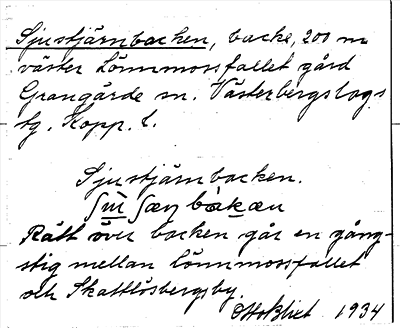 Sjustjärnbacken, backe, 200 m
väster Lönnmossfallet gård
Grangärde sn. Västerbergslags
tg. Kopp. l.
Sjustjärnbacken.
Rätt över backen går en gång-
stig mellan Lönnmossfallet
och Skattlösbergsby.
Otto Blixt 1934